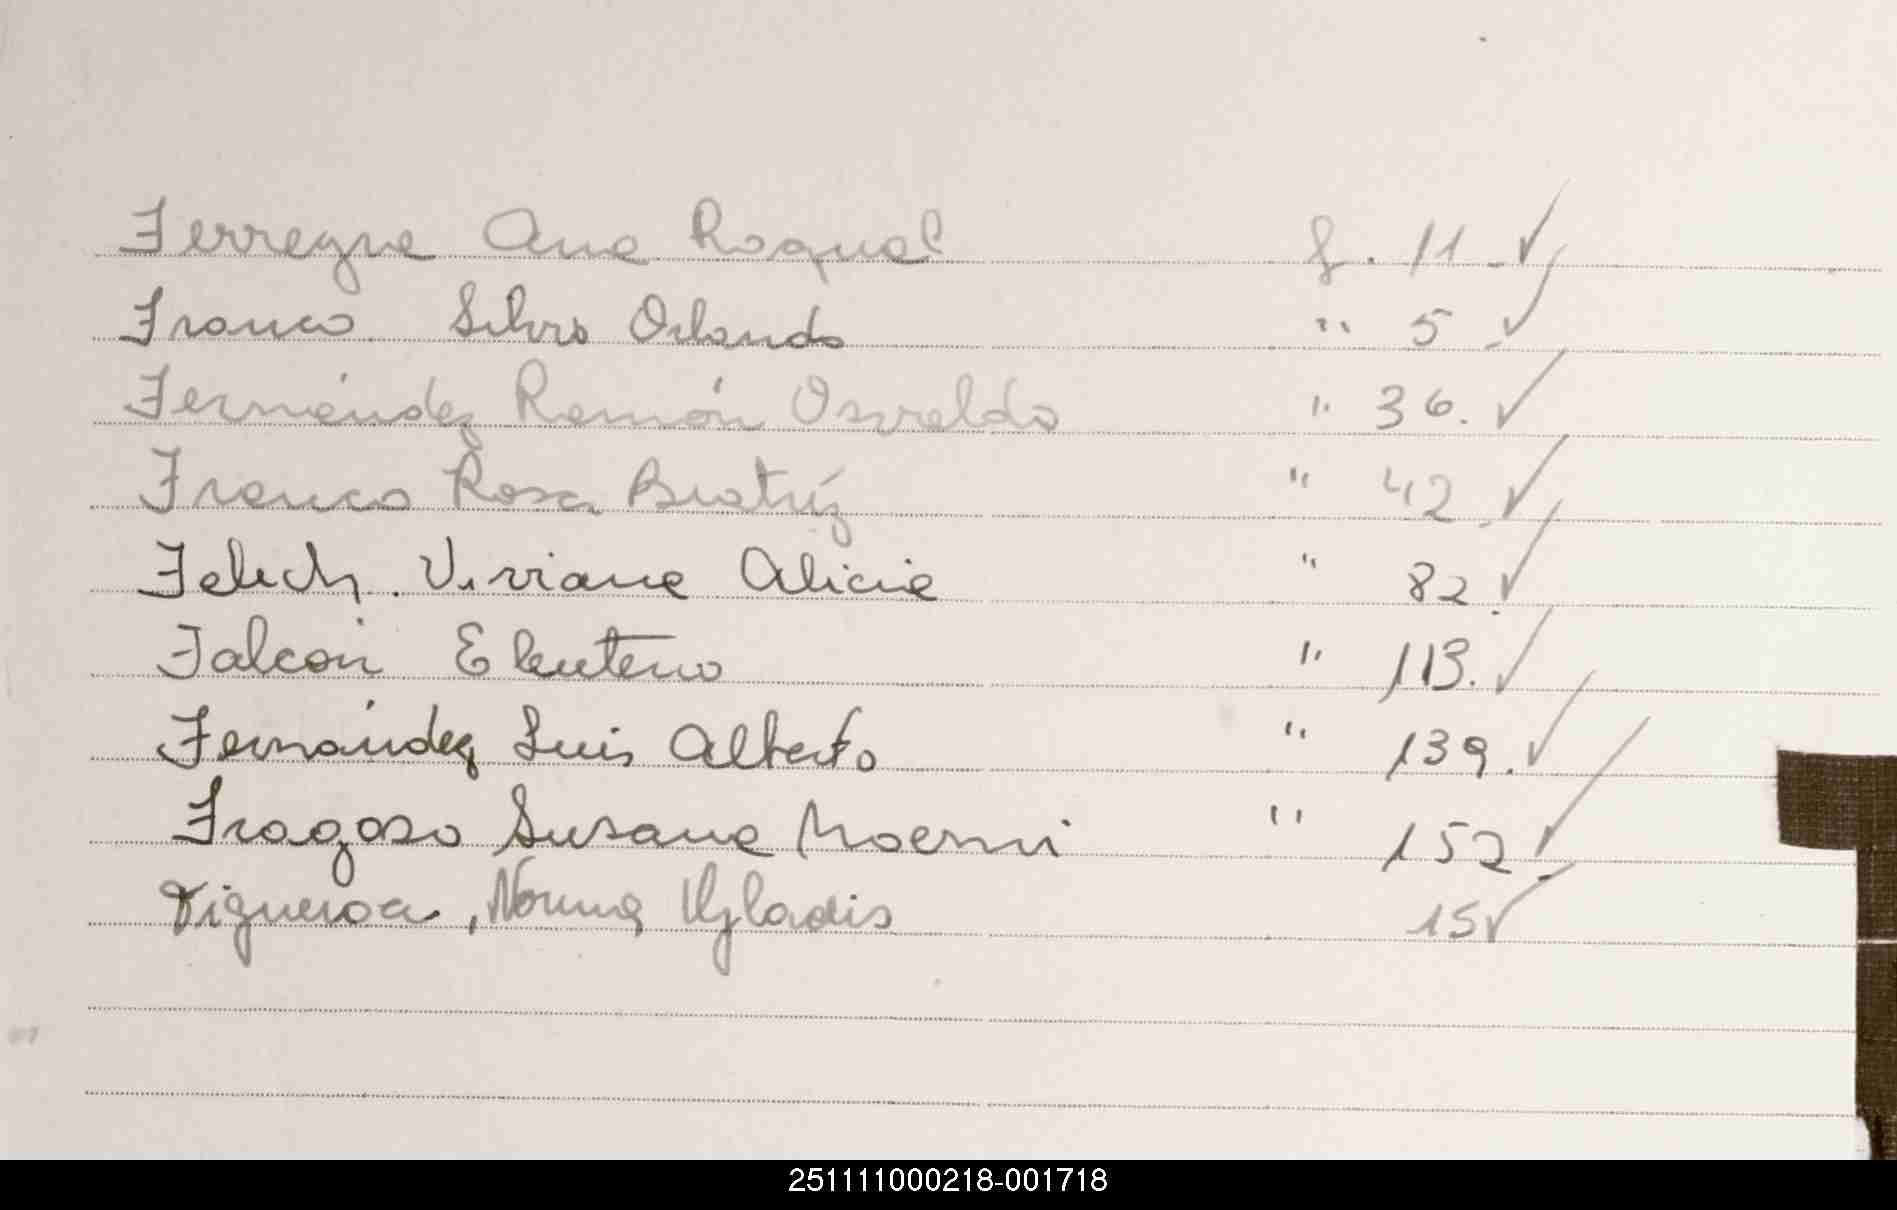 Ferreyra Ana Raquel f. 11 ✓
Franco Silvio Orlando " 5 ✓
Fernández Ramón Osvaldo " 36. ✓
Franco Rosa Beatríz " 42 ✓
Viviana Alicia " 82. ✓
Falcón Eleuterio " 113. ✓
Fernández Luis Alberto " 139. ✓
Fragoso Susana Noemi " 152 ✓
Figueroa, Norma Gladis 15 ✓
251111000218-001718